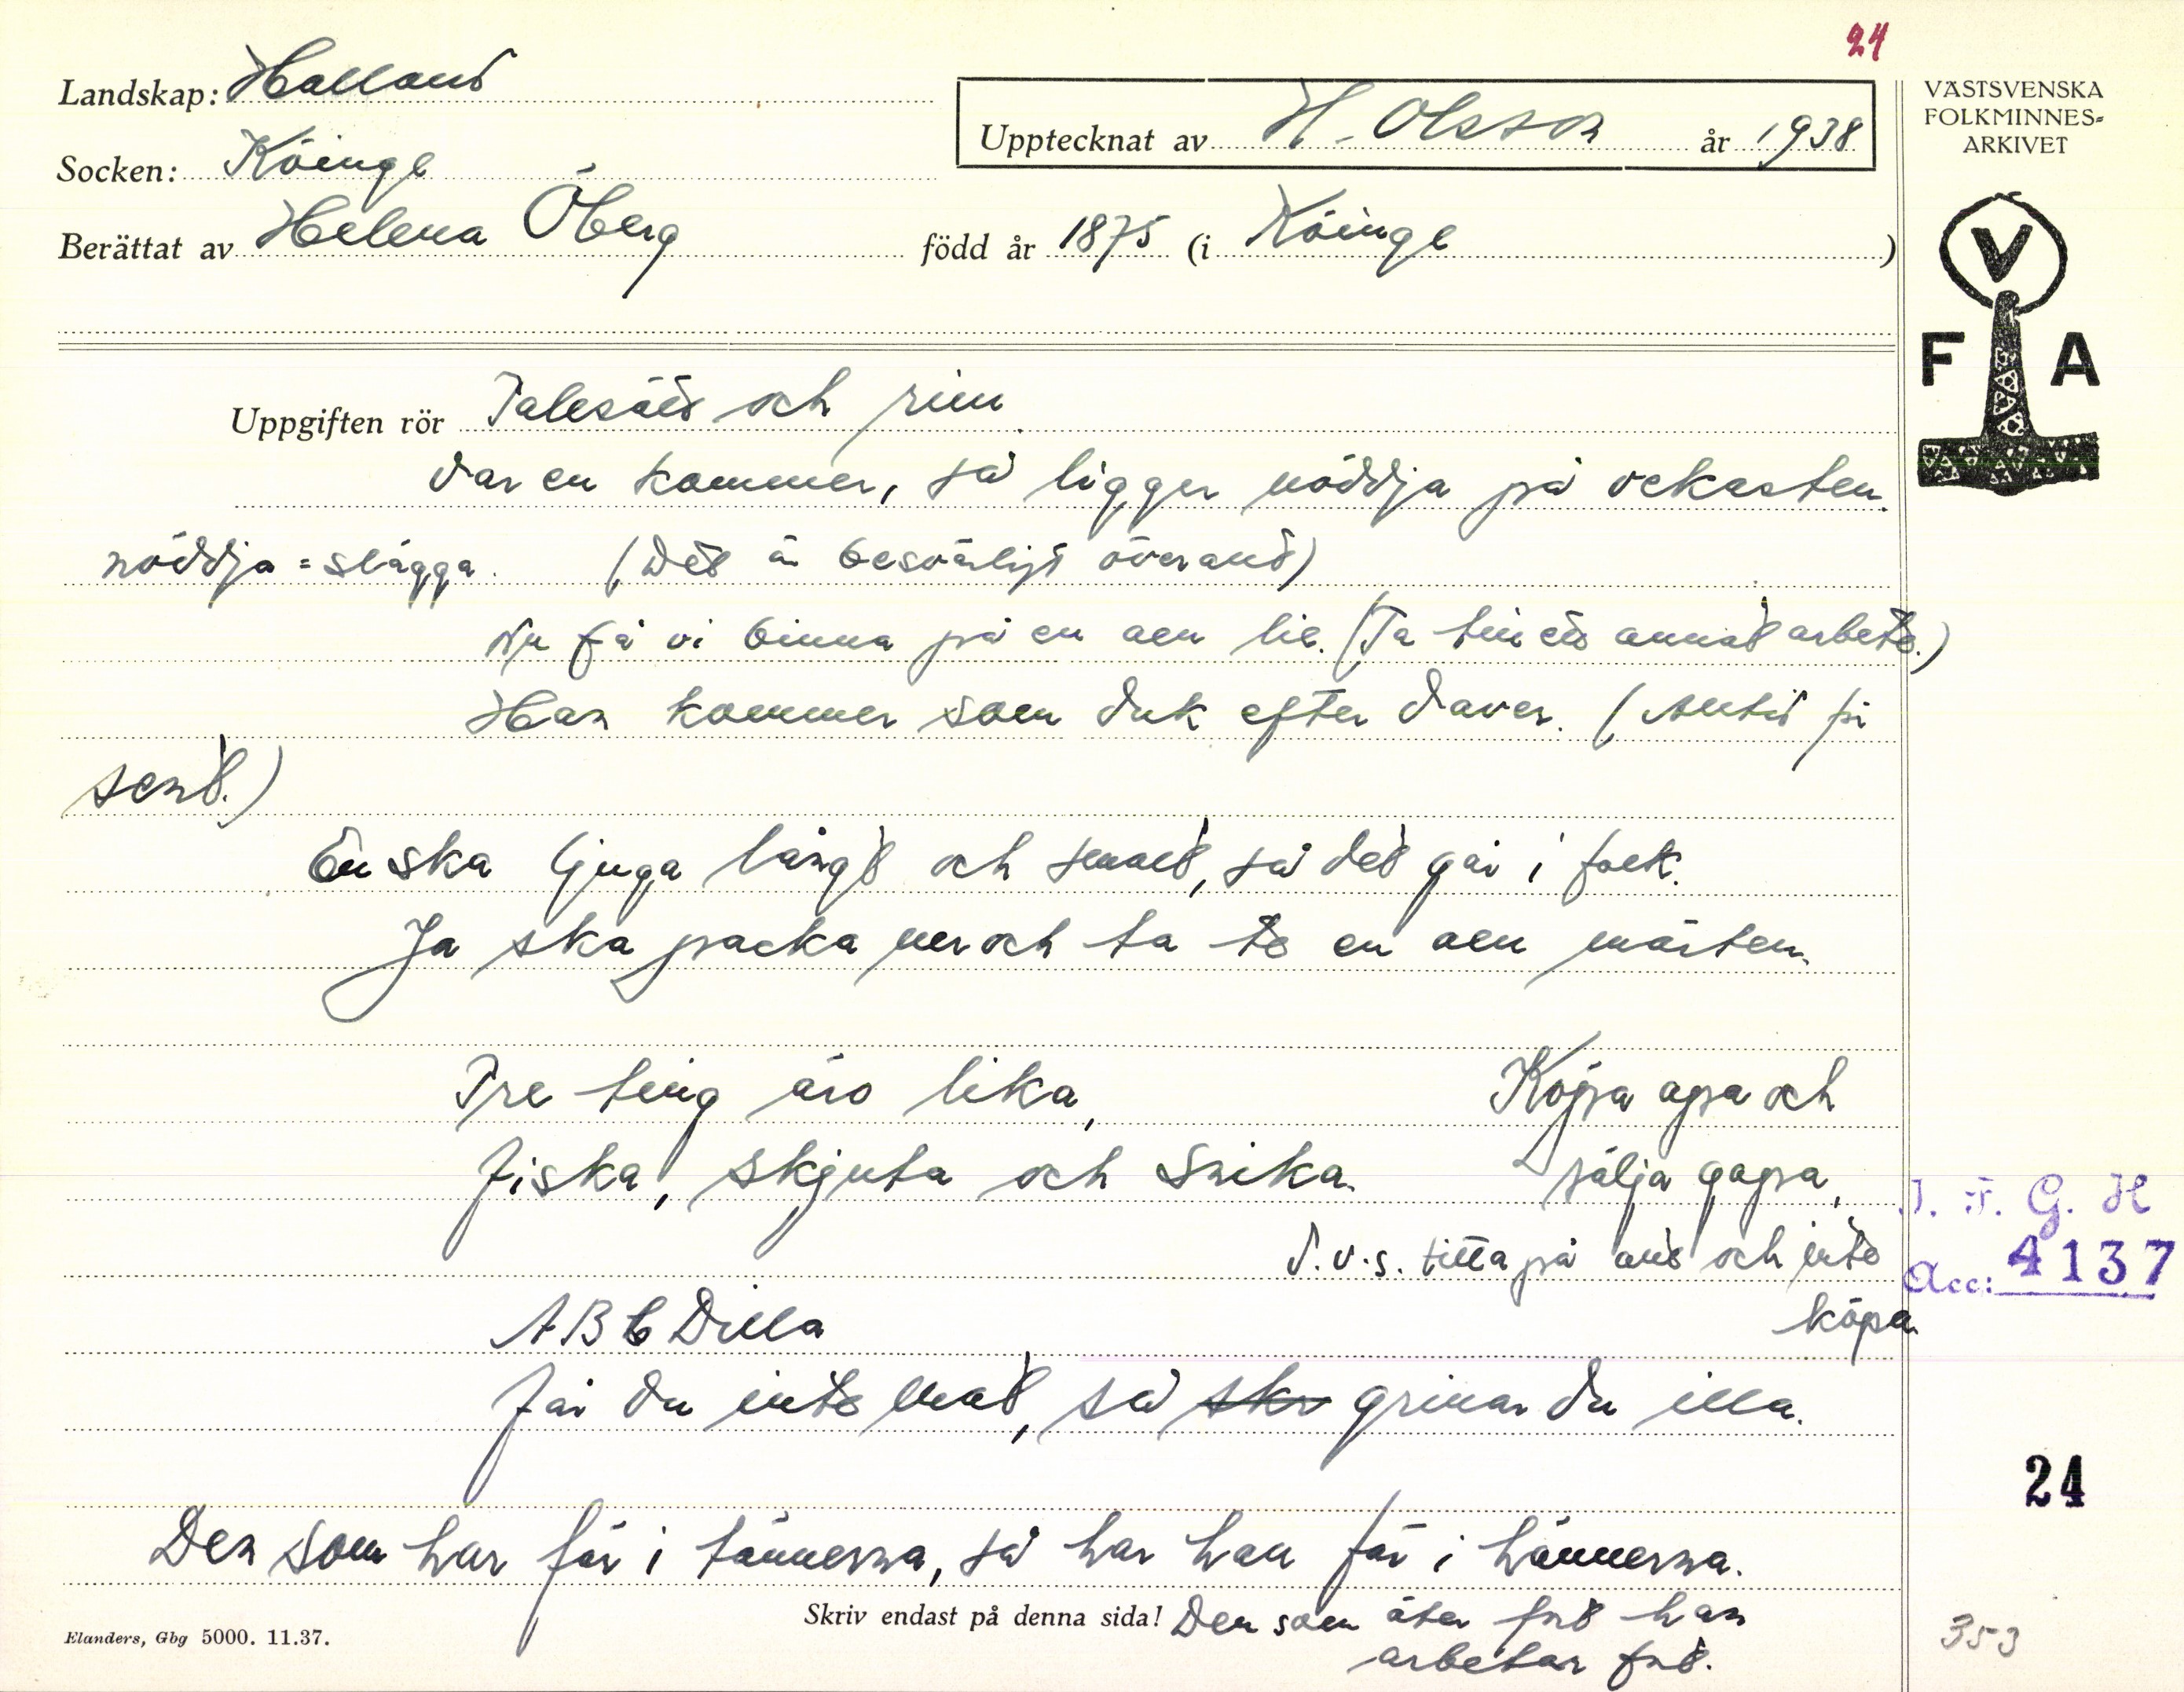 24
Landskap: Halland
Upptecknat av H. Olsson år 1938
VÄSTSVENSKA
FOLKMINNES-
ARKIVET
Socken: Köinge
Berättat av Helena Öberg född år 1875 (i Köinge)
V
F A
Uppgiften rör Talesätt och rim
Var en kommer, så ligger nöddja på vekasten.
nöddja = slägga. (Det är besvärligt överallt)
Nu få vi binna på en aen lie. (Ta till ett annat arbete.)
Han kommer som duk efter daver. (Alltid för
sent.)
En ska ljuga långt och smalt, så det går i folk.
Ja ska packa mer och ta te en aen mårten.
Tre ting äro lika,
fiska, skjuta och snika.
Köpa apa och
sälja gapa,
d.v.s. titta på allt och inte
köpa
I. F. G. H
Acc: 4137
A B C Dilla
får du inte mat, så skr grinar du illa.
24
Den som har får i tännerna, så har han får i hännerna.
Skriv endast på denna sida! Den som äter fort han
arbetar fort.
Elanders, Gbg 5000. 11.37.
353